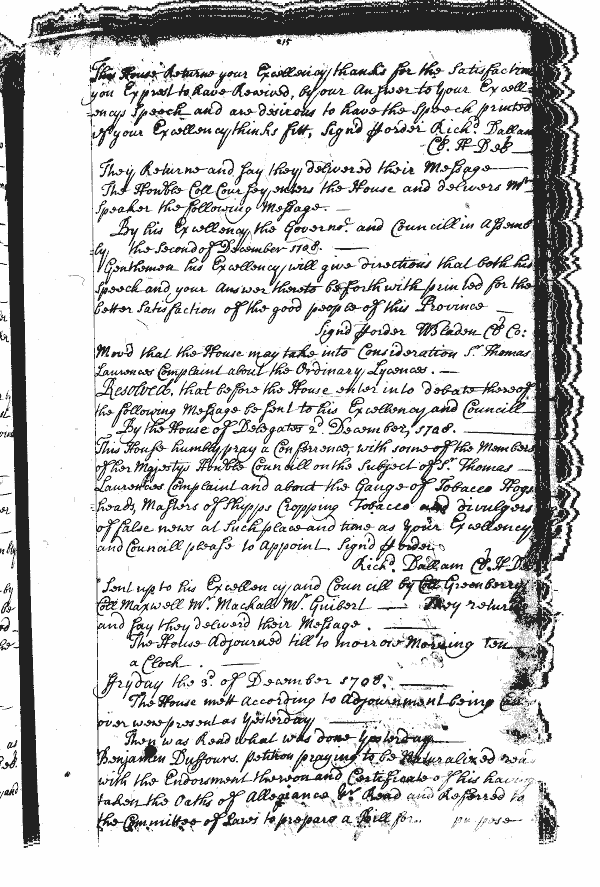 215
This House Returne your Excellency thanks for the Satisfaction
you Exprest to have Received, by our Answer to your Excell-
-encys Speech and are desirous to have the Speech printed
if your Excellency thinks fitt, Signd ꝑ order Richd. Dallam
Cl. H Del
They Returne and say they delivered their Message
The Honble Coll Coursey enters the House and delivers Mr
Speaker the following Message.
By his Excellency the Governr. and Councill in Assemb
ly the Second of December 1708.
Gentlemen his Excellency will give directions that both his
Speech and your Answer thereto be forthwith printed for the
better Satisfaction of the good people of this Province
Signd ꝑ order W Bladen Cl Co:
Mov'd that the House may take into Consideration Sr. Thomas
Laurences Complaint about the Ordinary Lycences.
Resolved, that before the House enter into debate thereof
the following Message be sent to his Excellency and Councill
By the House of Delegates 2d. December, 1708.
This House humbly pray a Conferrence, with some of the Members
of her Majestys Honble Councill on the Subject of Sr. Thomas
Laurences Complaint and about the Gauge of Tobacco Hogs
heads, Masters of Shipps Cropping Tobacco and divulgers
of false news at Such place and time as your Excellency
and Councill please to Appoint. Signd ꝑ order
Richd. Dallam Cl. H. De
Sent up to his Excellency and Councill by Coll Greenberry
Coll Maxwell Mr. Mackall Mr. Guibert They return
and say they deliverd their Message.
The House Adjourned till to morrow Morning ten
a Clock.
ffryday the 3d. of December 1708.
The House mett According to Adjournment being
over were present as Yesterday
Then was Read what was done Yesterday
Benjamin Duffours. petition praying to be Naturalized
with the Endorsment thereon and Certificate of his having
taken the Oaths of Allegiance &c. Read and Referred to
the Committee of Laws to prepare a Bill for purpose